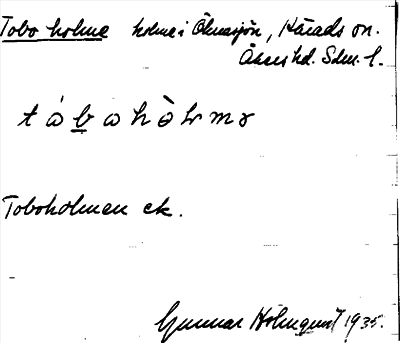 Tobo holme holme i Ölmasjön, Härads sn.
Åkers hd. Sdm. l.
t á b a h ò l m ə
Toboholmen ek.
Gunnar Holmquist 1935.